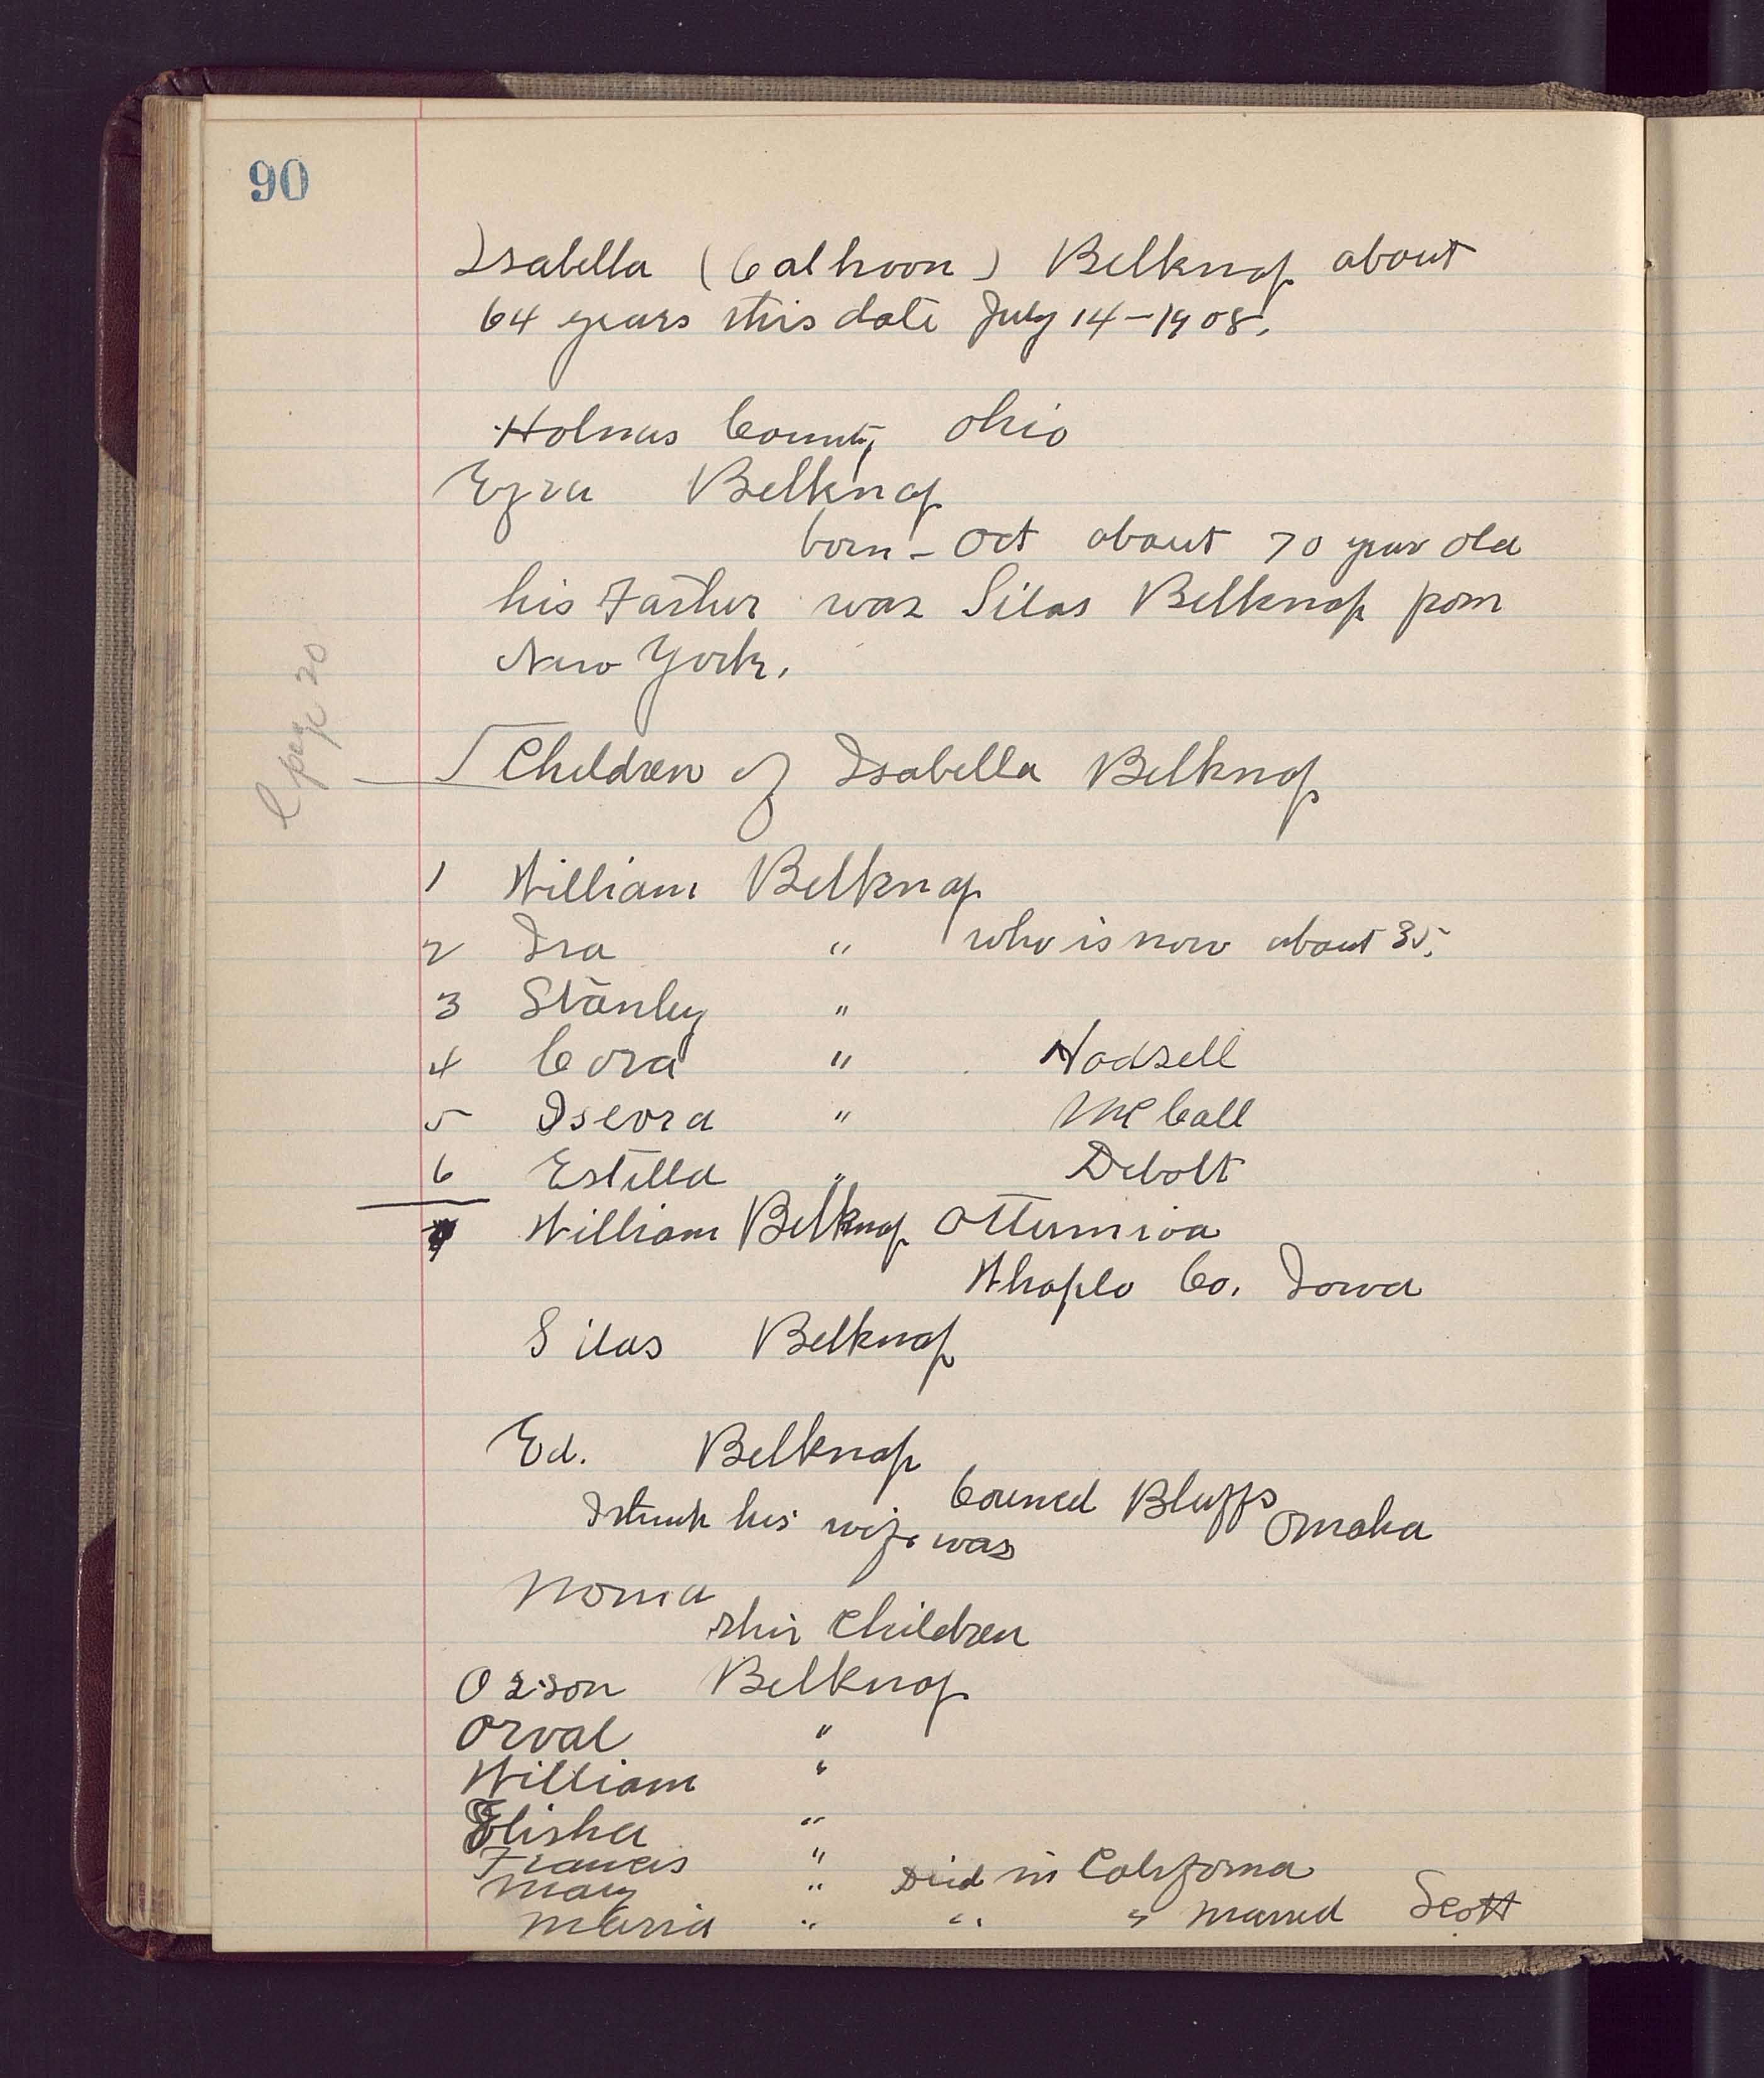 90
Isabella (Calhoon) Belknap about
64 years this date July 14-1908.
Holmes County Ohio
Ezra Belknap
born - Oct about 70 year old
his Father was Silas Belknap from
New York.
page 20
Children of Isabella Belknap
1 William Belknap
2 Ira " who is now about 35.
3 Stanley "
4 Cora " Hodsell
5 Iseora " McCall
6 Estella " Debolt
William Belknap Ottumwa
Whaplo Co. Iowa
Silas Belknap
Ed. Belknap
Council Bluffs Omaha
I think his wife was
Noma
thir Children
Orson Belknap
Orval "
William "
Elisha "
Francis "
Mary " Died in California
Maria " " " Married Scott